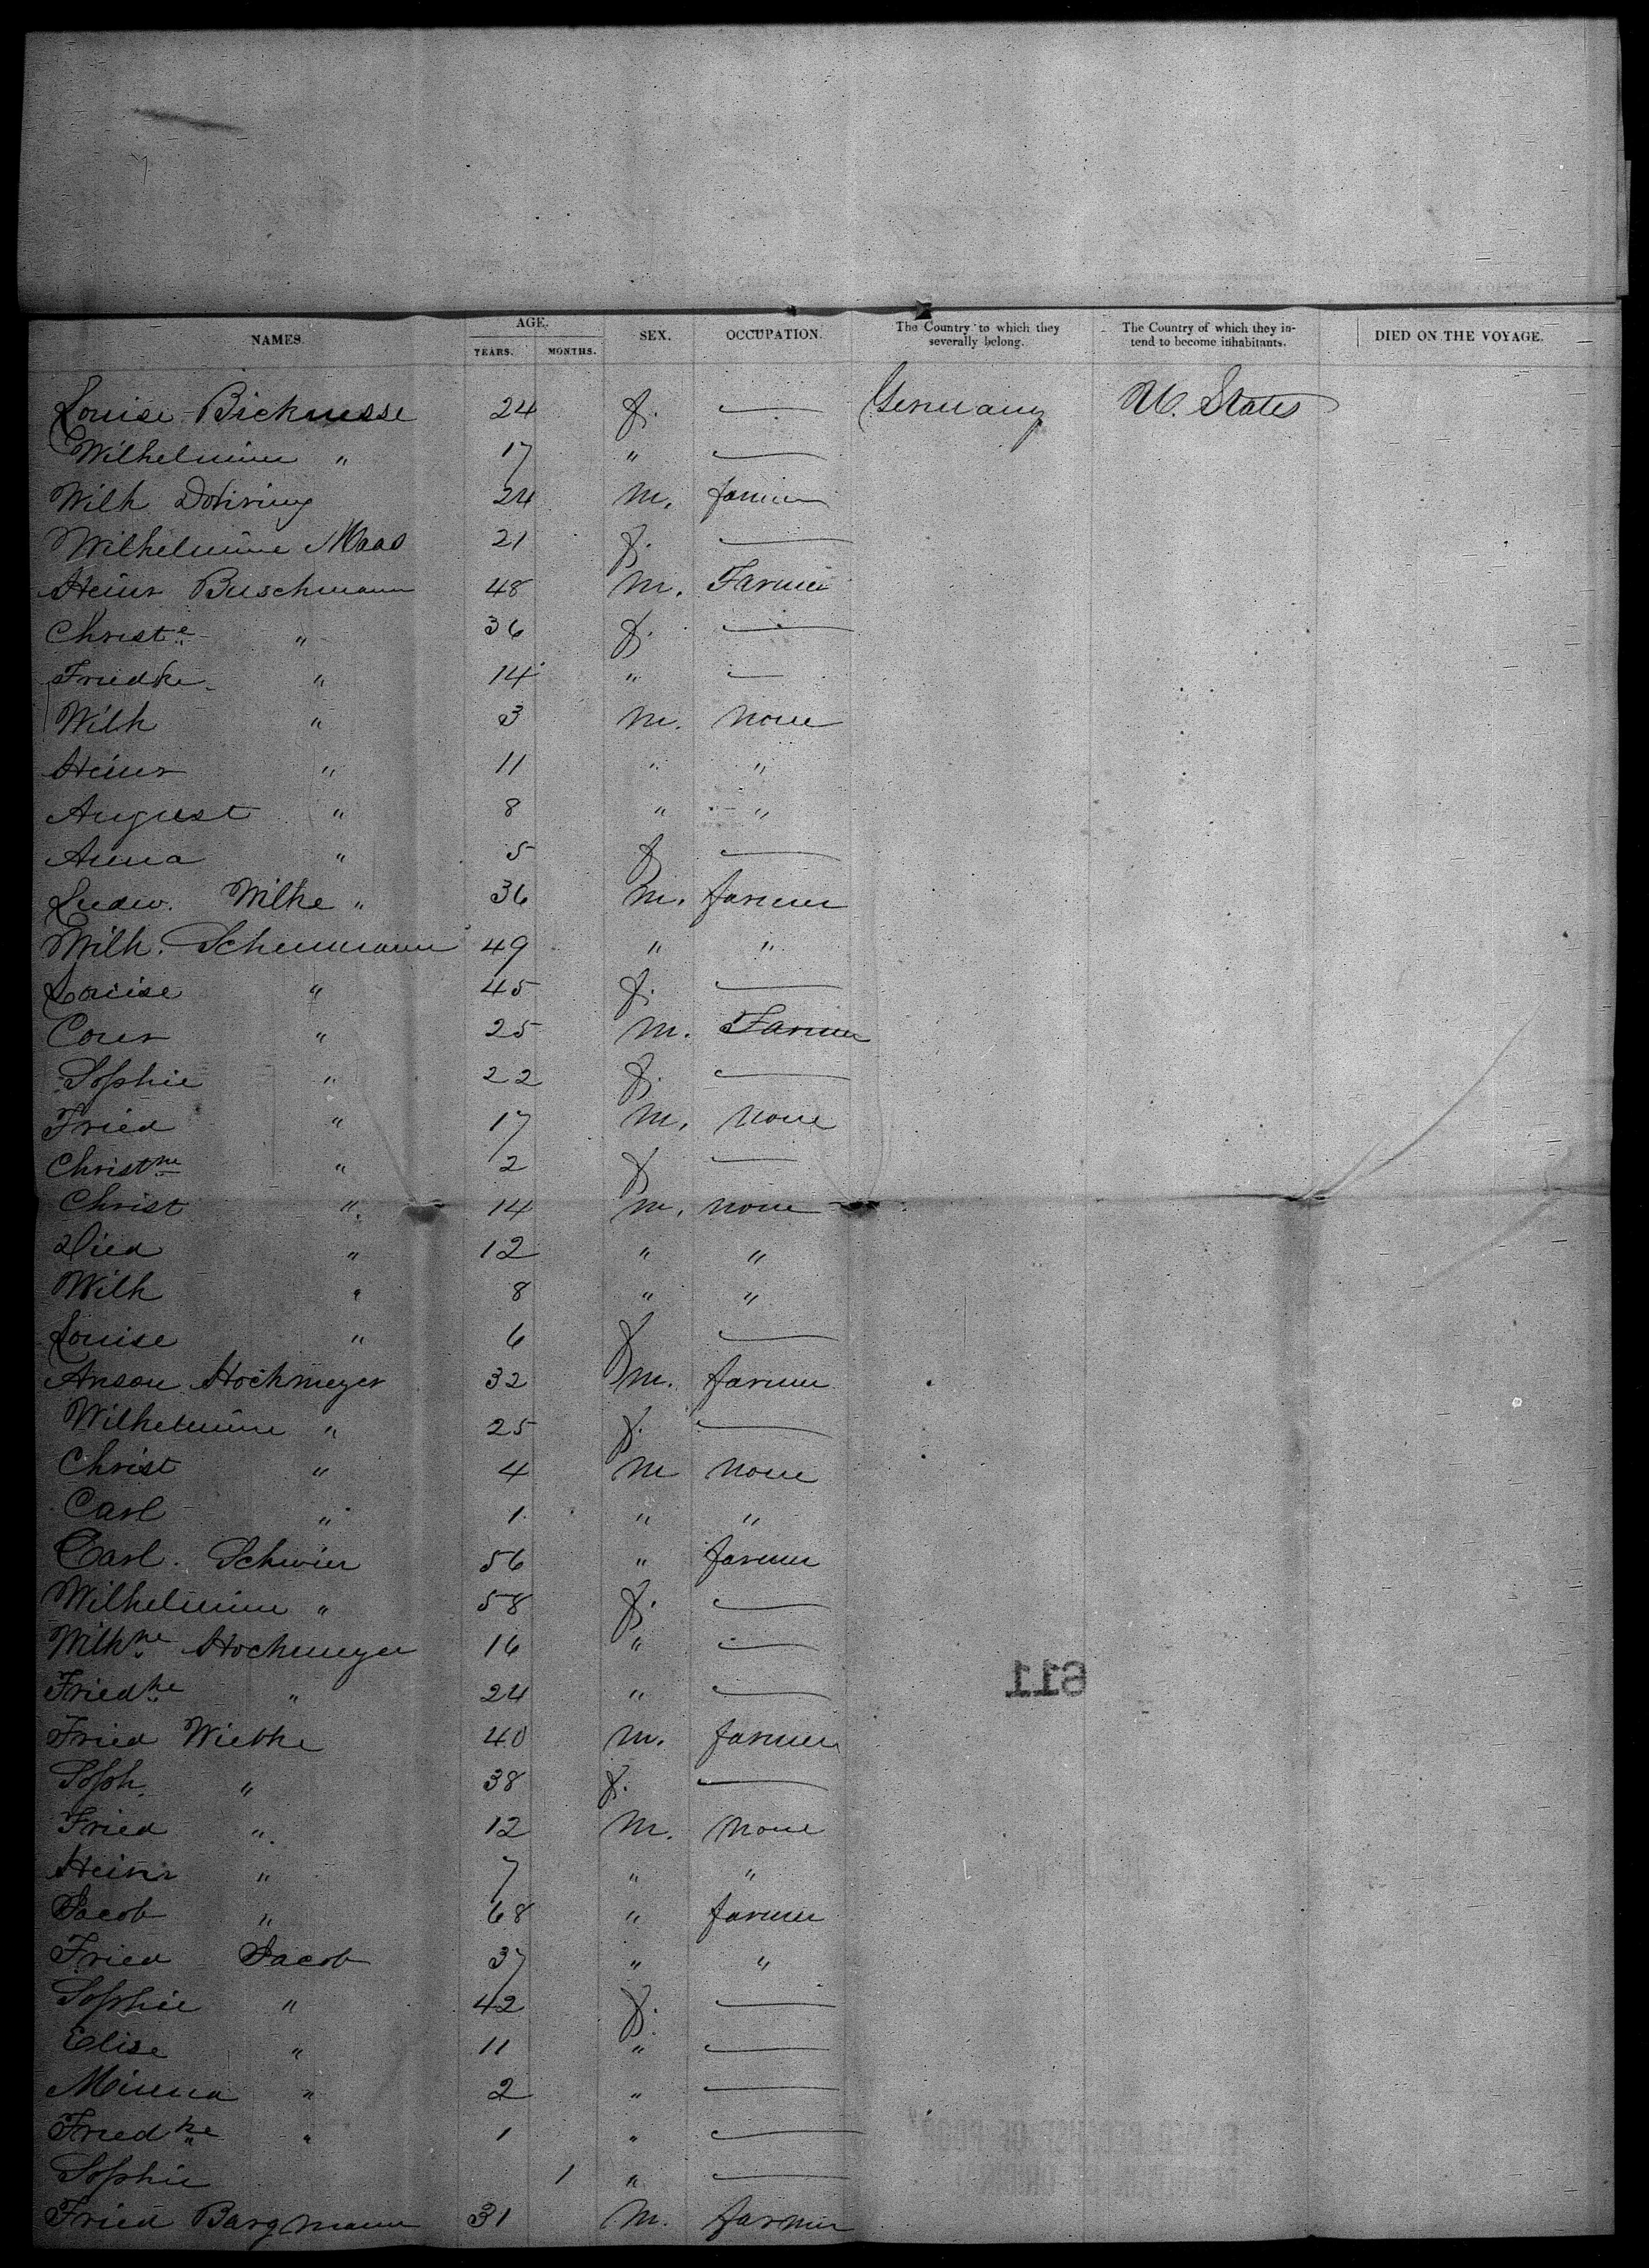 NAMES. AGE. SEX. OCCUPATION. The Country to which they severally belong. The Country of which they intend to become inhabitants. DIED ON THE VOYAGE.
YEARS. MONTHS.
Louise Bicknesse 24 f. — Germany U. States
Wilhelmine " 17 " —
Wilh Dohring 24 m. farmer
Wilhelmine Maas 21 f. —
Heinr Buschmann 48 m. Farmer
Christe " 36 f. —
Friedke " 14 " —
Wilh " 3 m. none
Heinr " 11 " "
August " 8 " "
Anna " 5 f —
Ludw. Wilke " 36 m. farmer
Wilh. Schuumann 49 " "
Louise " 45 f. —
Conr " 25 m. Farmer
Sophie " 22 f. —
Fried " 17 m. none
Christne " 2 f —
Christ " 14 m. none
Died " 12 " "
Wilh " 8 " "
Louise " 6 f —
Anson Hochmeyer 32 m. farmer
Wilhelmine " 25 f. —
Christ " 4 m none
Carl " 1 " "
Carl. Schwier 56 " farmer
Wilhelmine " 58 f. —
Wilhne Hochmeyer 16 " —
Friedke " 24 " —
611
Fried Wiethe 40 m. farmer
Soph. " 38 f. —
Fried " 12 m. none
Heinr " 7 " "
Jacob " 68 " farmer
Fried Jacob 37 " "
Sophie " 42 f. —
Elise " 11 " —
Minna " 2 " —
Friedke " 1 " —
Sophie 1 " —
Fried Bargmann 31 m. farmer